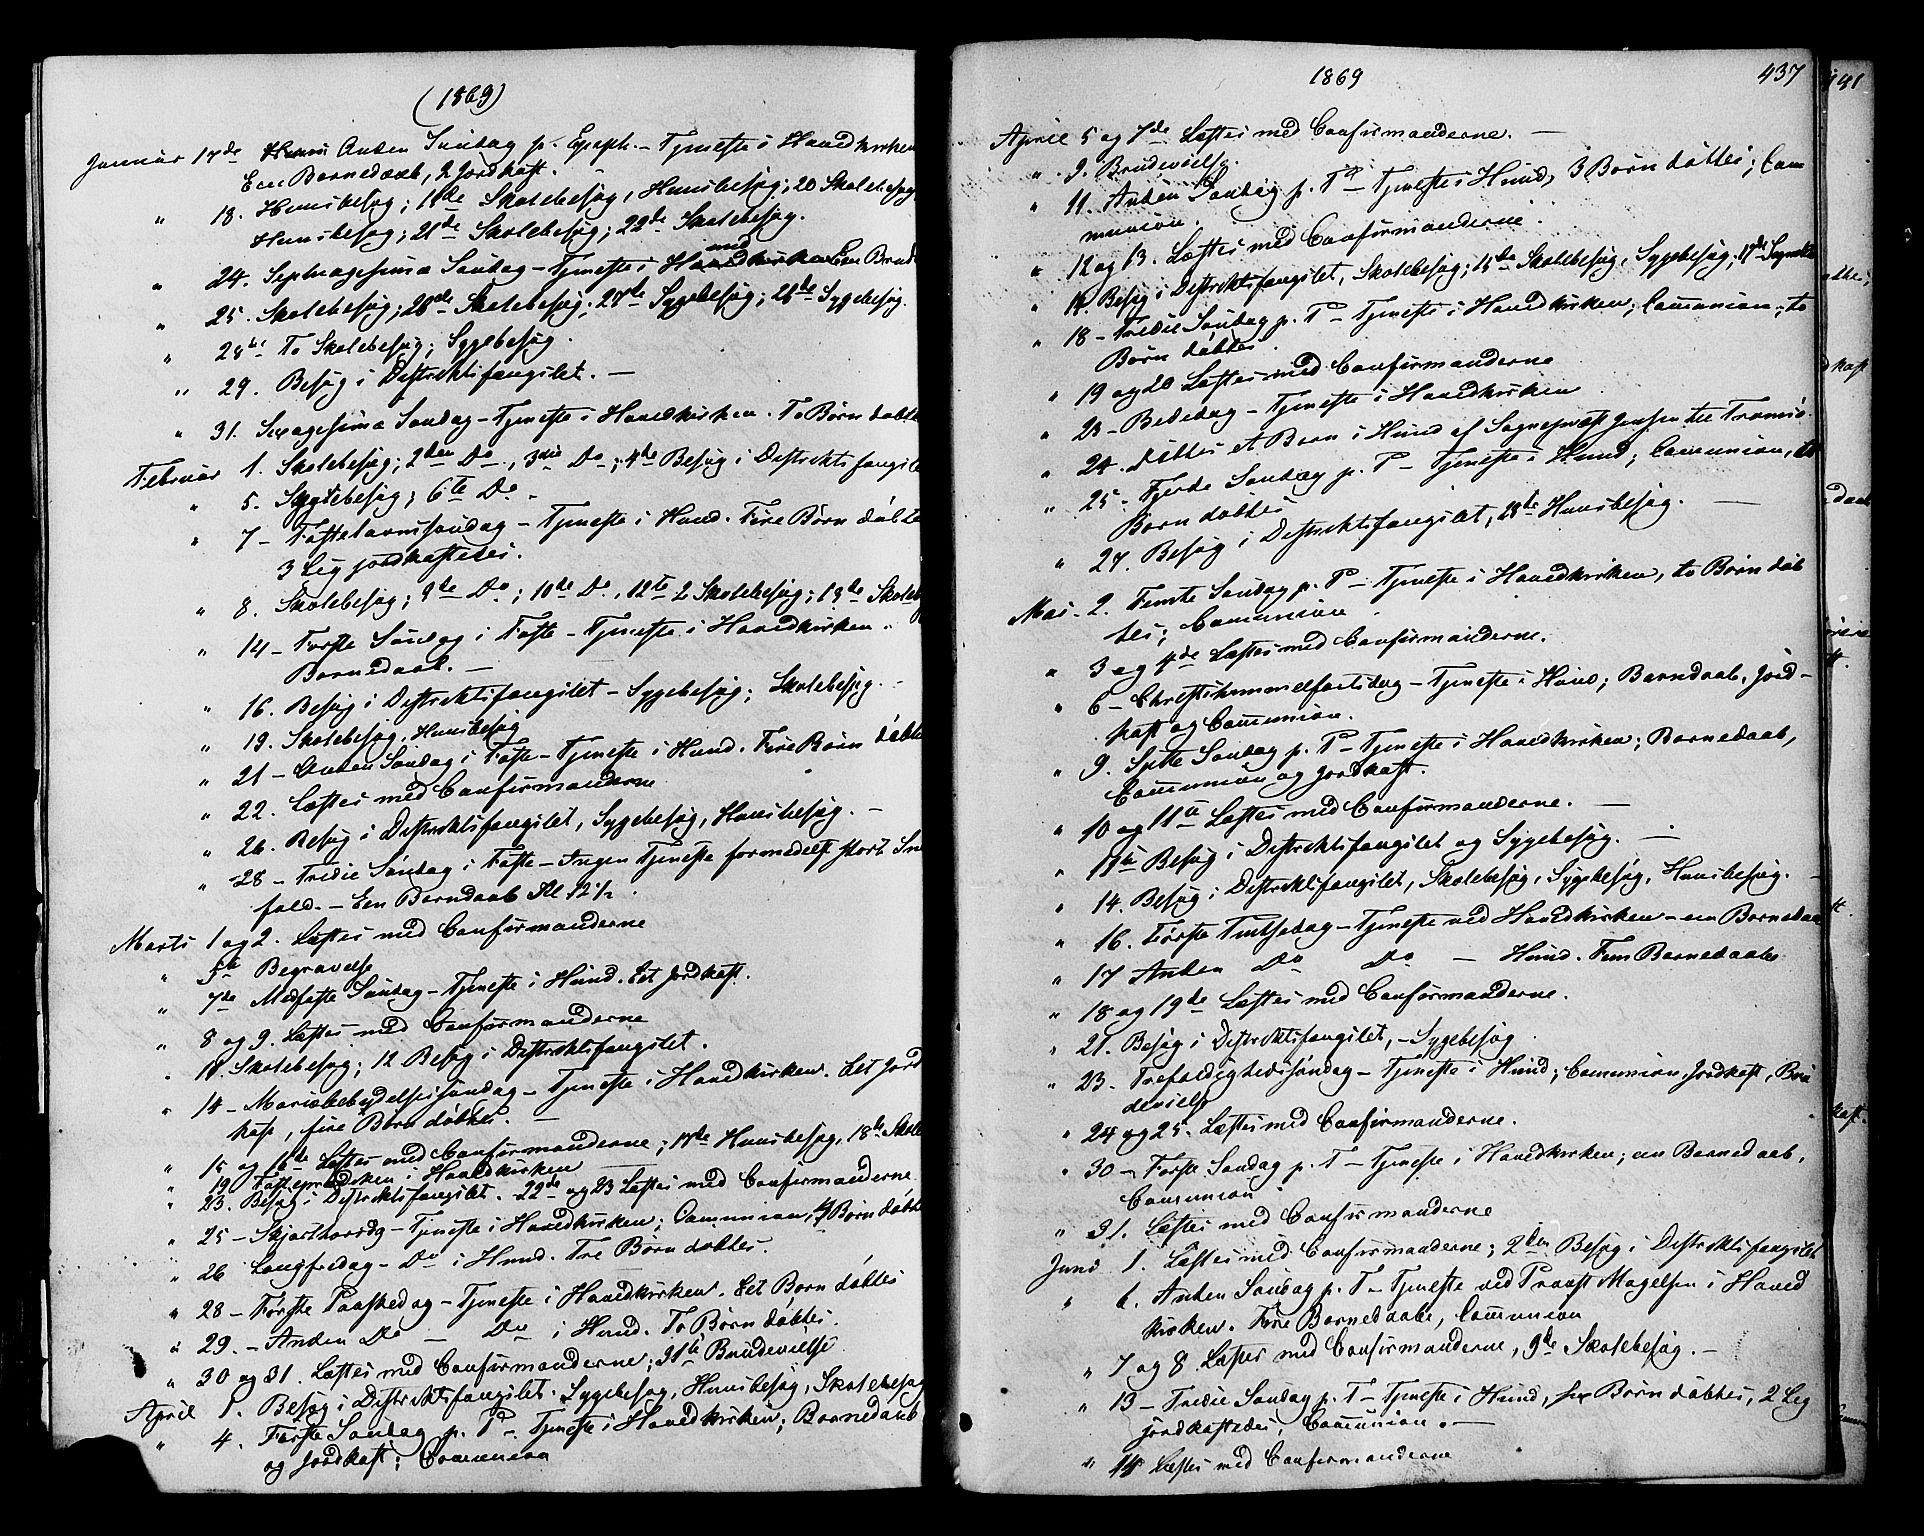 (1869)
Januar 17de Anden Søndag p. Epiph. – Tjeneste i Hovedkirken
Een Barnedaab, 2 Jordkast.
" 18. Huusbesøg; 19de Skolebesøg, Huusbesøg; 20 Skolebesøg,
Huusbesøg; 21de Skolebesøg; 22de Skolebesøg.
" 24. Septuagesima Søndag – Tjeneste i Hund Een Brude
" 25. Skolebesøg; 26de Skolebesøg; 27de Sygebesøg; 28de Sygebesøg.
" 28de To Skolebesøg; Sygebesøg.
" 29. Besøg i Distriktsfængslet. –
" 31. Sexagesima Søndag – Tjeneste i Hovedkirken. To Børn døbte
Februar 1. Skolebesøg; 2den Do, 3die Do; 4de Besøg i Distriktsfængsle
" 5. Sygebesøg; 6te Do –
" 7 – Fastelavnssøndag – Tjeneste i Hund. Fire Børn døbte
3 Lig jordkastedes.
" 8. Skolebesøg; 9de Do; 10de Do, 12te 2 Skolebesøg; 13de Skoleb
" 14 – Første Søndag i Faste – Tjeneste i Hovedkirken.
Barnedaab. –
" 16. Besøg i Distriktsfængslet – Sygebesøg; Skolebesøg. –
" 19. Skolebesøg, Huusbesøg
" 21 – Anden Søndag i Faste – Tjeneste i Hund. Fire Børn døbte
" 22. Læstes med Confirmanderne
" 26. Besøg i Distriktsfængslet, Sygebesøg, Huusbesøg. –
" 28 – Tredie Søndag i Faste – Ingen Tjeneste formedelst stort Sne
fald. – Een Barndaab Kl 12½
Marts 1 og 2. Læstes med Confirmanderne
" 5te Begravelse
" 7de Midfaste Søndag – Tjeneste i Hund. Eet Jordkast.
" 8 og 9. Læstes med Confirmanderne
" 11. Skolebesøg; 12 Besøg i Distriktsfængslet.
" 14 – Mariæbebudelsessøndag – Tjeneste i Hovedkirken. Eet Jord
kast, fire Børn døbtes. –
" 15 og 16de Læstes med Confirmanderne; 17de Huusbesøg, 18de Skole
" 19 Fasteprædiken i Hovedkirken
" 23. Besøg i Distriktsfængslet. 22de og 23 Læstes med Confirmanderne
" 25 – Skjærthorsdg – Tjeneste i Hovedkirken; Communion, 4 Børn døbte
" 26 Langfredag – Do i Hund. Tre Børn døbtes.
" 28 – Første Paaskedag – Tjeneste i Hovedkirken. Eet Barn døbtes
" 29. – Anden Do – Do i Hund. To Børn døbtes.
" 30 og 31. Læstes med Confirmanderne; 31te Brudevielse
April 1. Besøg i Distriktsfængslet. Sygebesøg, Huusbesøg, Skolebesøg
" 4. Første Søndag p. P – Tjeneste i Hovedkirken; Barnedaab
og Jordkast; Communion
1869 437
April 5 og 7de Læstes med Confirmanderne. –
" 9. Brudevielse.
" 11. Anden Søndag p. P – Tjeneste i Hund, 3 Børn døbtes; Com
munion.
" 12 og 13. Læstes med Confirmanderne.
" 14. Besøg i Distriktsfængslet, Skolebesøg; 15de Skolebesøg, Sygebesøg; 17de
" 18 – Tredie Søndag p. P – Tjeneste i Hovedkirken; Communion; to
Børn døbtes.
" 19 og 20 Læstes med Confirmanderne
" 23 – Bededag – Tjeneste i Hovedkirken
" 24. Døbtes et Barn i Hund af Sognepræst Jensen til Tromsø
" 25 – Fjerde Søndag p. P – Tjeneste i Hund; Communion, et
Barn døbtes
" 27. Besøg i Distriktsfængslet, 28de Huusbesøg. –
Mai 2. Femte Søndag p. P – Tjeneste i Hovedkirken, to Børn døb
tes; Communion.
" 3 og 4de Læstes med Confirmanderne.
" 6 – Christihimmelfartsdag – Tjeneste i Hund; Barndaab, Jord-
kast og Communion.
" 9. Sjette Søndag p. P – Tjeneste i Hovedkirken; Barnedaab,
Communion og Jordkast.
" 10 og 11te Læstes med Confirmanderne. –
" 11te Besøg i Distriktsfængslet og Sygebesøg. –
" 14. Besøg i Distriktsfængslet, Skolebesøg, Sygebesøg, Huusbesøg. –
" 16. Første Pintsedag – Tjeneste ved Hovedkirken – en Barnedaab
" 17 Anden Do Do – Hund. Fem Barnedaabe
" 18 og 19de Læstes med Confirmanderne.
" 21. Besøg i Distriktsfængslet, – Sygebesøg
" 23. Trefoldighedssøndag – Tjeneste i Hund; Communion, Jordkast, Bru
devielse
" 24 og 25. Læstes med Confirmanderne.
" 30 – Første Søndag p. T – Tjeneste i Hovedkirken; en Barnedaab,
Communion
" 31. Læstes med Confirmanderne
Juni 1. Læstes med Confirmanderne; 2den Besøg i Distriktsfængslet
" 6. Anden Søndag p. T – Tjeneste ved Provst Magelsen i Hoved
kirken. Fire Barnedaabe, Communion
" 7 og 8 Læstes med Confirmanderne, 9de Skolebesøg. –
" 13 – Tredie Søndag p. T – Tjeneste i Hund, sex Børn døbtes, 2 Lig
jordkastedes, Communion. –
" 14 Læstes med Confirmanderne